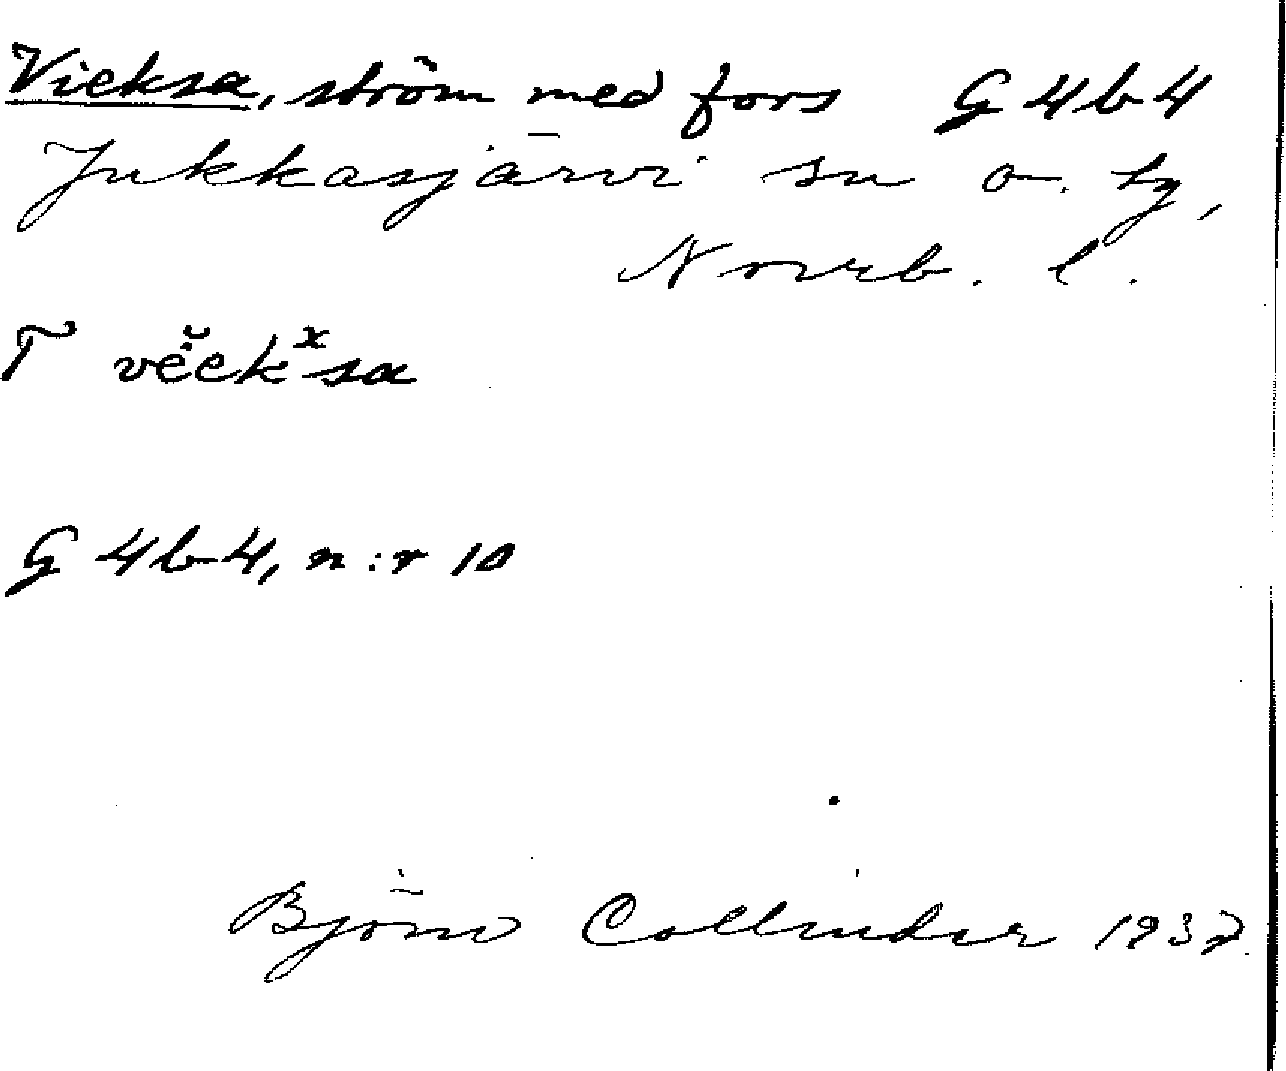 Vieksa, ström med fors G 4 b 4
Jukkasjärvi sn o. tg,
Norrb. l.
T vĕ̈ekˣsa
G 4 b 4, n:r 10
Björn Collinder 1937